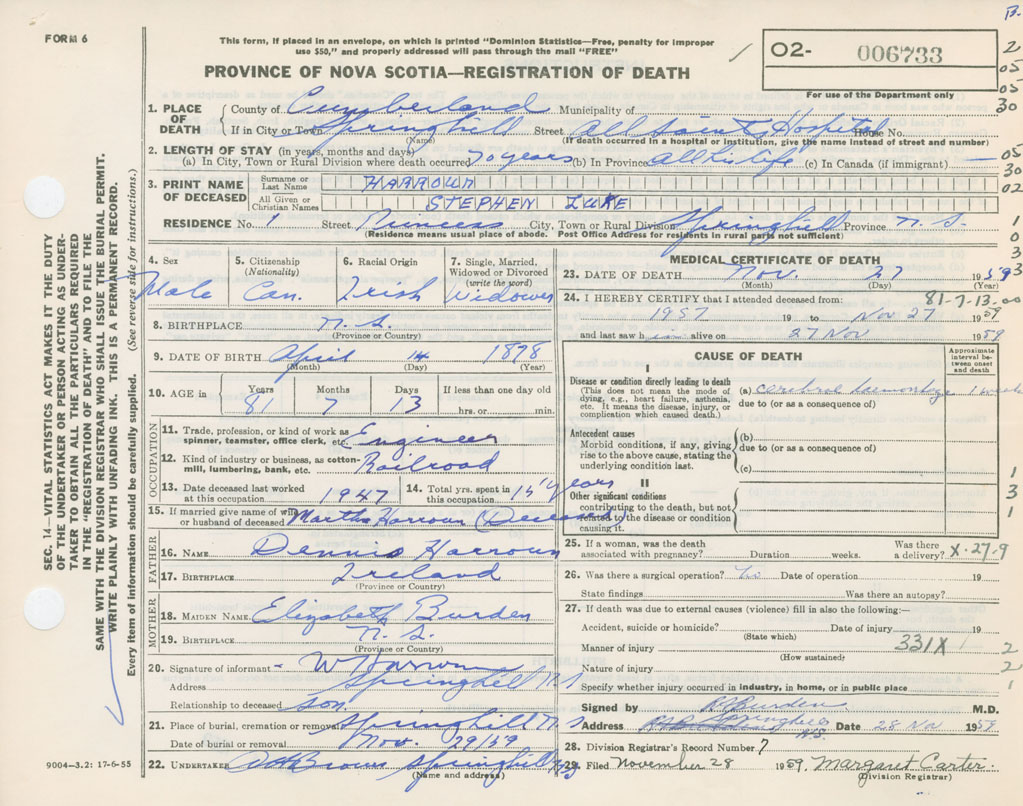 B.
FORM 6
This form, if placed in an envelope, on which is printed "Dominion Statistics—Free, penalty for improper
use $50," and properly addressed will pass through the mail "FREE"
PROVINCE OF NOVA SCOTIA—REGISTRATION OF DEATH
02- 006733
For use of the Department only
2
05
05
30
1. PLACE OF DEATH County of Cumberland Municipality of
If in City or Town Springhill Street All Saints Hospital House No.
(Name) (If death occurred in a hospital or institution, give the name instead of street and number)
2. LENGTH OF STAY (in years, months and days)
(a) In City, Town or Rural Division where death occurred 70 years (b) In Province all his life (c) In Canada (if immigrant)
05
30
02
3. PRINT NAME OF DECEASED Surname or Last Name HARROUN
All Given or Christian Names STEPHEN LUKE
RESIDENCE No. 1 Street Princess City, Town or Rural Division Springhill Province N.S.
(Residence means usual place of abode. Post Office Address for residents in rural parts not sufficient)
1
0
3
3
4. Sex Male
5. Citizenship (Nationality) Can.
6. Racial Origin Irish
7. Single, Married, Widowed or Divorced (write the word) Widower
8. BIRTHPLACE N.S.
(Province or Country)
9. DATE OF BIRTH April 14 1878
(Month) (Day) (Year)
10. AGE in Years 81 Months 7 Days 13 If less than one day old hrs. or min.
OCCUPATION
11. Trade, profession, or kind of work as spinner, teamster, office clerk, etc. Engineer
12. Kind of industry or business, as cotton-mill, lumbering, bank, etc. Railroad
13. Date deceased last worked at this occupation 1947
14. Total yrs. spent in this occupation 15 years
15. If married give name of wife or husband of deceased Martha Harroun (Deceased)
FATHER
16. NAME Dennis Harroun
17. BIRTHPLACE Ireland
(Province or Country)
MOTHER
18. MAIDEN NAME Elizabeth Burden
19. BIRTHPLACE N.S.
(Province or Country)
20. Signature of informant - W Harroun
Address Springhill N.S
Relationship to deceased Son
21. Place of burial, cremation or removal Springhill N.S
Date of burial or removal Nov. 29/59
22. UNDERTAKER Brown Springhill N.S
(Name and address)
9004-3.2: 17-6-55
MEDICAL CERTIFICATE OF DEATH
23. DATE OF DEATH Nov. 27 1959
(Month) (Day) (Year)
24. I HEREBY CERTIFY that I attended deceased from: 81-7-13-00
1957 19 to Nov 27 1959
and last saw him alive on 27 Nov 1959
CAUSE OF DEATH
Approximate interval between onset and death
I
Disease or condition directly leading to death
(This does not mean the mode of dying, e.g., heart failure, asthenia, etc. It means the disease, injury, or complication which caused death.)
(a) cerebral hemorrhage 1 week
due to (or as a consequence of)
Antecedent causes
Morbid conditions, if any, giving rise to the above cause, stating the underlying condition last.
(b)
due to (or as a consequence of)
(c)
II
Other significant conditions
contributing to the death, but not related to the disease or condition causing it.
1
3
1
25. If a woman, was the death associated with pregnancy? Duration weeks. Was there a delivery? X-27-9
26. Was there a surgical operation? No Date of operation 19
State findings Was there an autopsy?
27. If death was due to external causes (violence) fill in also the following:—
Accident, suicide or homicide? Date of injury 19
(State which)
Manner of injury 331X 1
(How sustained)
Nature of injury
Specify whether injury occurred in industry, in home, or in public place
2
2
1
Signed by Burden M.D.
Address Springhill N.S. Date 28 Nov 1959
28. Division Registrar's Record Number 7
29. Filed November 28 1959 Margaret Carter
(Division Registrar)
SEC. 14—VITAL STATISTICS ACT MAKES IT THE DUTY
OF THE UNDERTAKER OR PERSON ACTING AS UNDER-
TAKER TO OBTAIN ALL THE PARTICULARS REQUIRED
IN THE "REGISTRATION OF DEATH" AND TO FILE THE
SAME WITH THE DIVISION REGISTRAR WHO SHALL ISSUE THE BURIAL PERMIT.
WRITE PLAINLY WITH UNFADING INK. THIS IS A PERMANENT RECORD.
Every item of information should be carefully supplied. (See reverse side for instructions.)